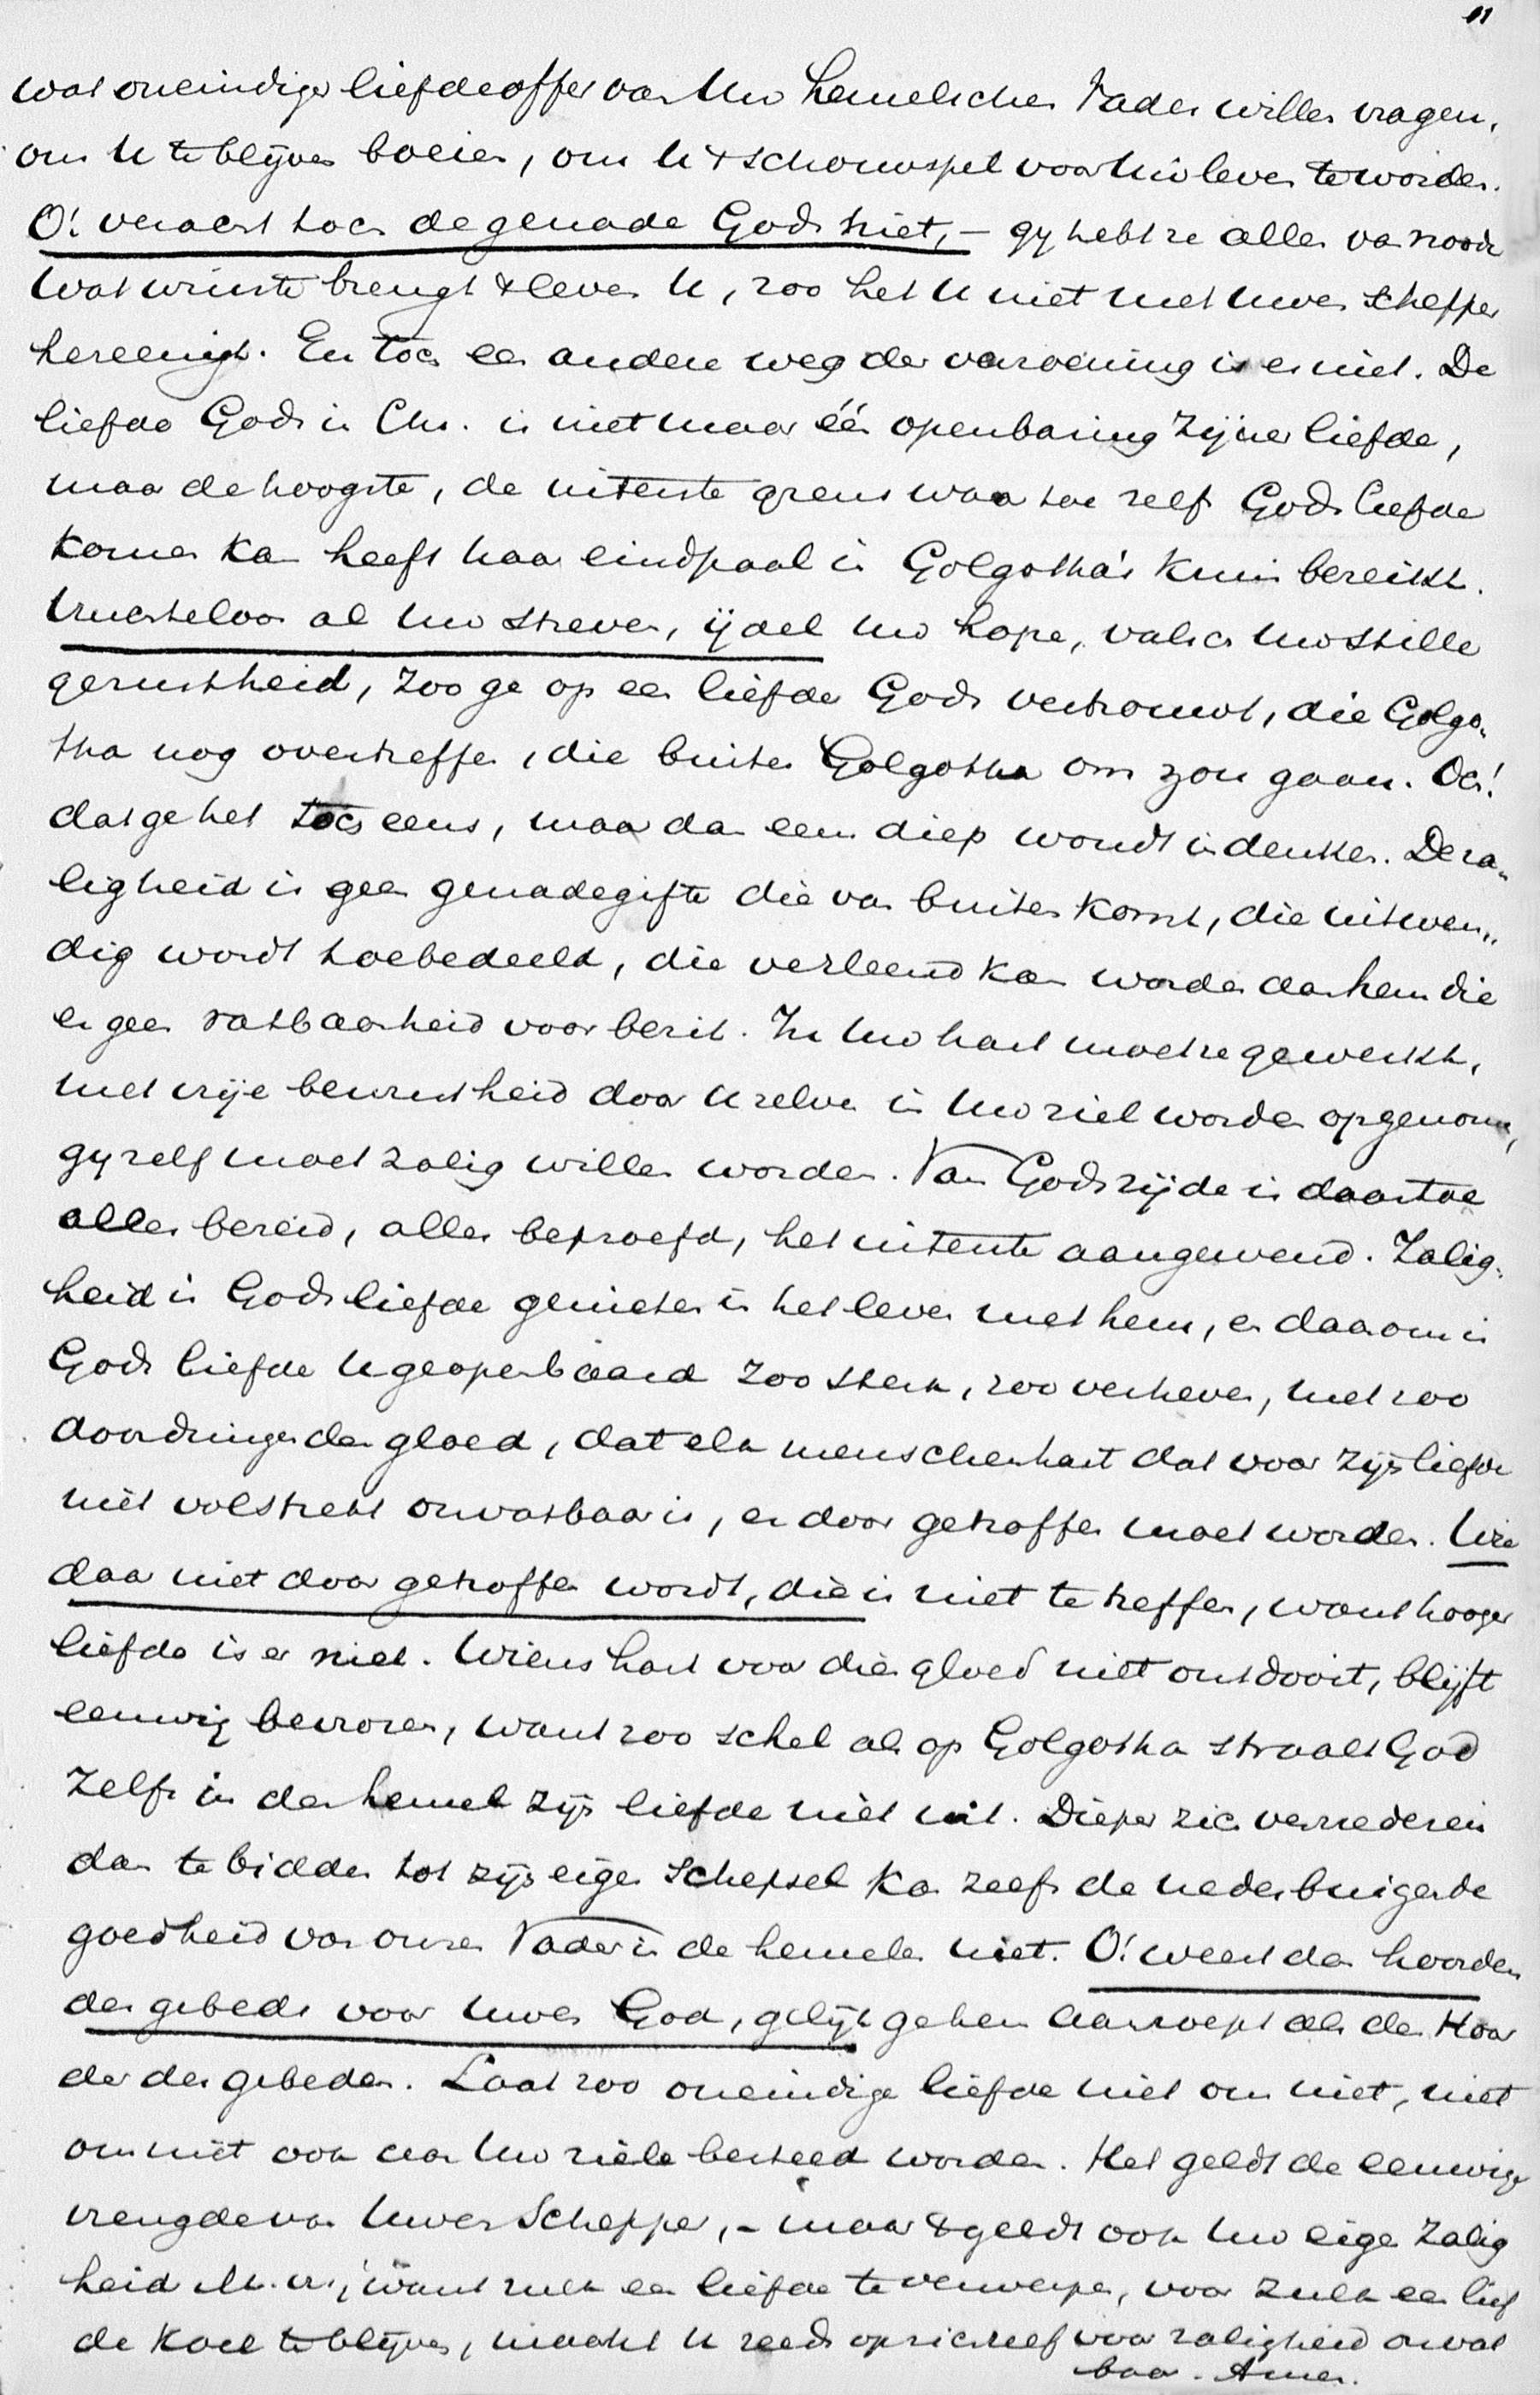 11
wat oneindiger liefdeoffer van Uw hemelschen Vader willen vragen,
om U te blijven boeien, om U 't schouwspel voor Uw leven te worden.
O! veracht toch de genade Gods niet, – gij hebt ze allen van noode
Wat winste brengt 't leven U, zoo het U niet met Uwen Schepper
hereenigt. En toch een andere weg der verzoening is er niet. De
liefde Gods in Chr. is niet maar één openbaring Zijner liefde,
maar de hoogste, de uiterste grens waartoe zelfs Gods liefde
komen kan heeft haar eindpaal in Golgotha's Kruis bereikt.
Vruchteloos al Uw streven, ijdel Uw hope, valsch Uw stille
gerustheid, zoo ge op een liefde Gods vertrouwt, die Golgo-
tha nog overtreffen, die buiten Golgotha om zou gaan. Och!
dat ge het toch eens, maar dan eens diep wondt indenken. De za-
ligheid is geen genadegifte die van buiten komt, die uitwen-
dig wordt toebedeeld, die verleend kan worden aan hem die
er geen vatbaarheid voor bezit. In Uw hart moet ze gewerkt,
met vrije bewustheid door U zelven in Uw ziel worden opgenomen,
gij zelf moet zalig willen worden. Van Gods zijde is daartoe
alles bereid, alles beproefd, het uiterste aangewend. Zalig-
heid is Gods liefde genieten in het leven met hem, en daarom is
Gods liefde U geopenbaard zoo sterk, zoo verheven, met zoo
doordringenden gloed, dat elk menschenhart dat voor zijn liefde
niet volstrekt onvatbaar is, er door getroffen moet worden. Wie
daar niet door getroffen wordt, die is niet te treffen, want hooger
liefde is er niet. Wiens hart voor dien gloed niet ontdooit, blijft
eeuwig bevroren, want zoo schel als op Golgotha straalt God
Zelfs in den hemel zijn liefde niet uit. Dieper zich vernederen
dan te bidden tot zijn eigen Schepsel kan zelfs de nederbuigende
goedheid van onzen Vader in de hemelen niet. O! weest dan hoorders
des gebeds voor Uwen God, gelijk ge hem aanroept als den Hoor
der der gebeden. Laat zoo oneindige liefde niet om niet, niet
om niet ook aan Uw ziele besteed worden. Het geldt de eeuwige
vreugde van Uwen Schepper, – maar 't geldt ook Uw eigen Zalig
heid M. vr., want zulk een liefde te verwerpen, voor zulk een lief
de koel te blijven, maakt U reeds op zichzelf voor zaligheid onvat
baar. Amen.